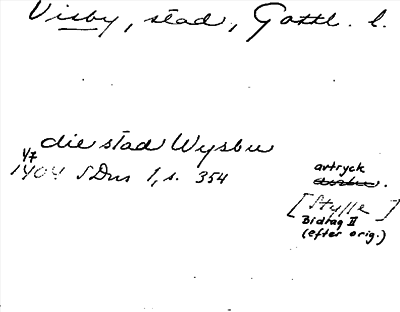 Visby, stad, Gottl. l.
die stad Wysbu
1/7
1404 SDns 1, s. 354
avtryck
[Styffe]
Bidrag II
(efter orig.)